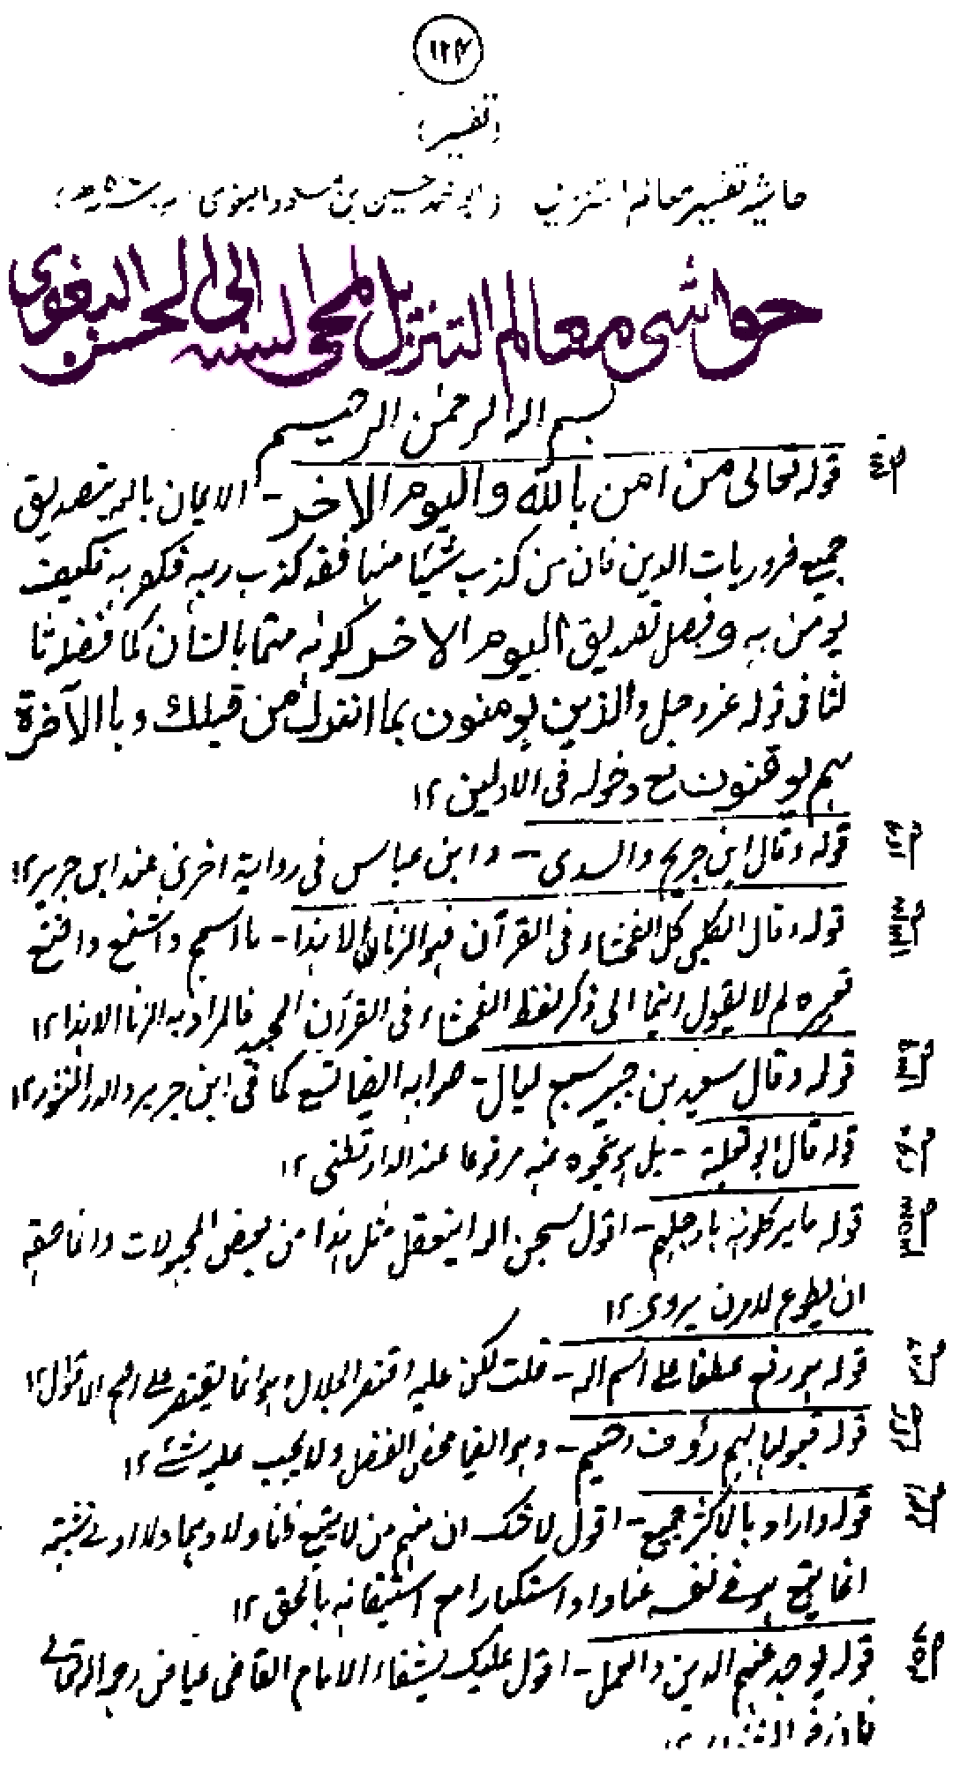 ۱۲۴
(تفسیر)
حاشیہ تفسیر معالم التنزیل (ابو محمد حسین بن مسعود البغوی
حواشی معالم التنزیل للمحی السنہ ابی الحسن البغوی
بسم اللہ الرحمٰن الرحیم
قولہ تعالی من امن باللہ والیوم الاخر - الایمان باللہ تصدیق
جمیع ضروریات الدین فان من کذب شیئا منہا فقد کذب ربہ فکیف
یومن بہ وفصل تصدیق الیوم الاخر لکونہ مہتما بالشان کما فضلہ
فی قولہ عزوجل والذین یومنون بما انزل من قبلک و بالآخرۃ
ہم یوقنون مع دخولہ فی الاولین ۱۲
قولہ وقال ابن جریج والسدی - وابن عباس فی روایۃ اخری عند ابن جریر ۱۲
قولہ وقال الکلبی کل الفحشاء فی القرآن فہو الزنا الا ہذا - ما اسمج واشنع واقبح
تعبیرہ لم لا یقول اینما اتی ذکر لفظ الفحشاء فی القرآن المجید فالمراد بہ الزنا الا ہذا ۱۲
قولہ وقال سعید بن جبیر سبع لیال - صوابہ ایضا تسع کما فی ابن جریر والدر المنثور ۱۲
قولہ قال ابو ثعلبۃ - بل ہو بنحوہ عنہ مرفوعا عند الدارقطنی ۱۲
قولہ ما یرکلونہ بارجلہم - اقول سبحن اللہ اینعقل مثل ہذا من بعض المجہولات وانما حقہ
ان یطوع لا من یروی ۱۲
قولہ ہو رفع عطفا علی اسم اللہ - قلت لکن علیہ اقتصر الجلال وہو انما یقتصر علی ارجح الاقوال ۱۲
قولہ قبولہا بہم رؤف رحیم - وہو ایضا محض الفضل ولا یجب علیہ شئ ۱۲
قولہ واراد بالاکثر جمیع - اقول لا شک ان منہم من لا یتبع ظنا ولا وہما ولا ادنی شبہۃ
انما یتبع ہوی نفسہ عنادا واستکبارا مع استیقانہ بالحق ۱۲
قولہ یوجد عنہم الدین والعمل - اقول علیک بشفاء الامام القاضی عیاض رحمہ اللہ تعالی